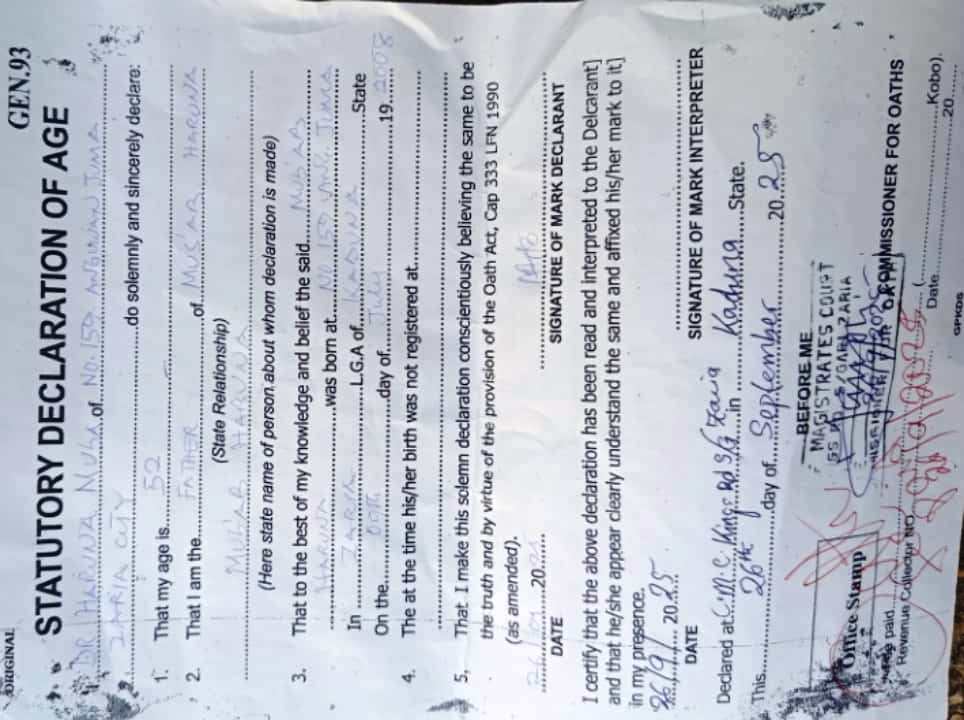 ORIGINAL
GEN.93
STATUTORY DECLARATION OF AGE
DR HARUNA MUSA of No. 159 ANGUWAN JUMA
ZARIA CITY do solemnly and sincerely declare:
1. That my age is 52
2. That I am the FATHER of MUS'AB HARUNA
(State Relationship)
MUS'AB HARUNA
(Here state name of person about whom declaration is made)
3. That to the best of my knowledge and belief the said MUS'AB
HARUNA was born at NO 159 JUMA
In ZARIA L.G.A of KADUNA State
On the day of July 19 2008
4. The at the time his/her birth was not registered at
5. That I make this solemn declaration conscientiously believing the same to be
the truth and by virtue of the provision of the Oath Act, Cap 333 LFN 1990
(as amended).
20
DATE
SIGNATURE OF MARK DECLARANT
I certify that the above declaration has been read and interpreted to the Delcarant]
and that he/she appear clearly understand the same and affixed his/her mark to it]
in my presence.
26/9/ 20.25
DATE
SIGNATURE OF MARK INTERPRETER
Declared at M.C. Zaria in Kaduna State.
This 26th day of September 20 25
BEFORE ME
MAGISTRATES COURT
ZARIA
COMMISSIONER FOR OATHS
Office Stamp
paid ( Kobo).
Revenue Collector NO Date 20
GPKDS